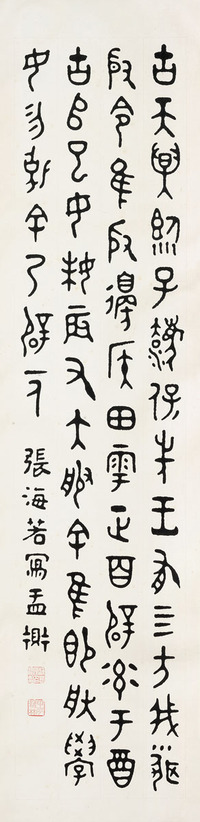 古天異臨子灋保先王有四方我聞
殷令隹殷邊侯田雩正百辟率于酉
古𠂤巳女妹辰又大服余隹即朕學
女勿剋余乃辟一人 張海若寫盂